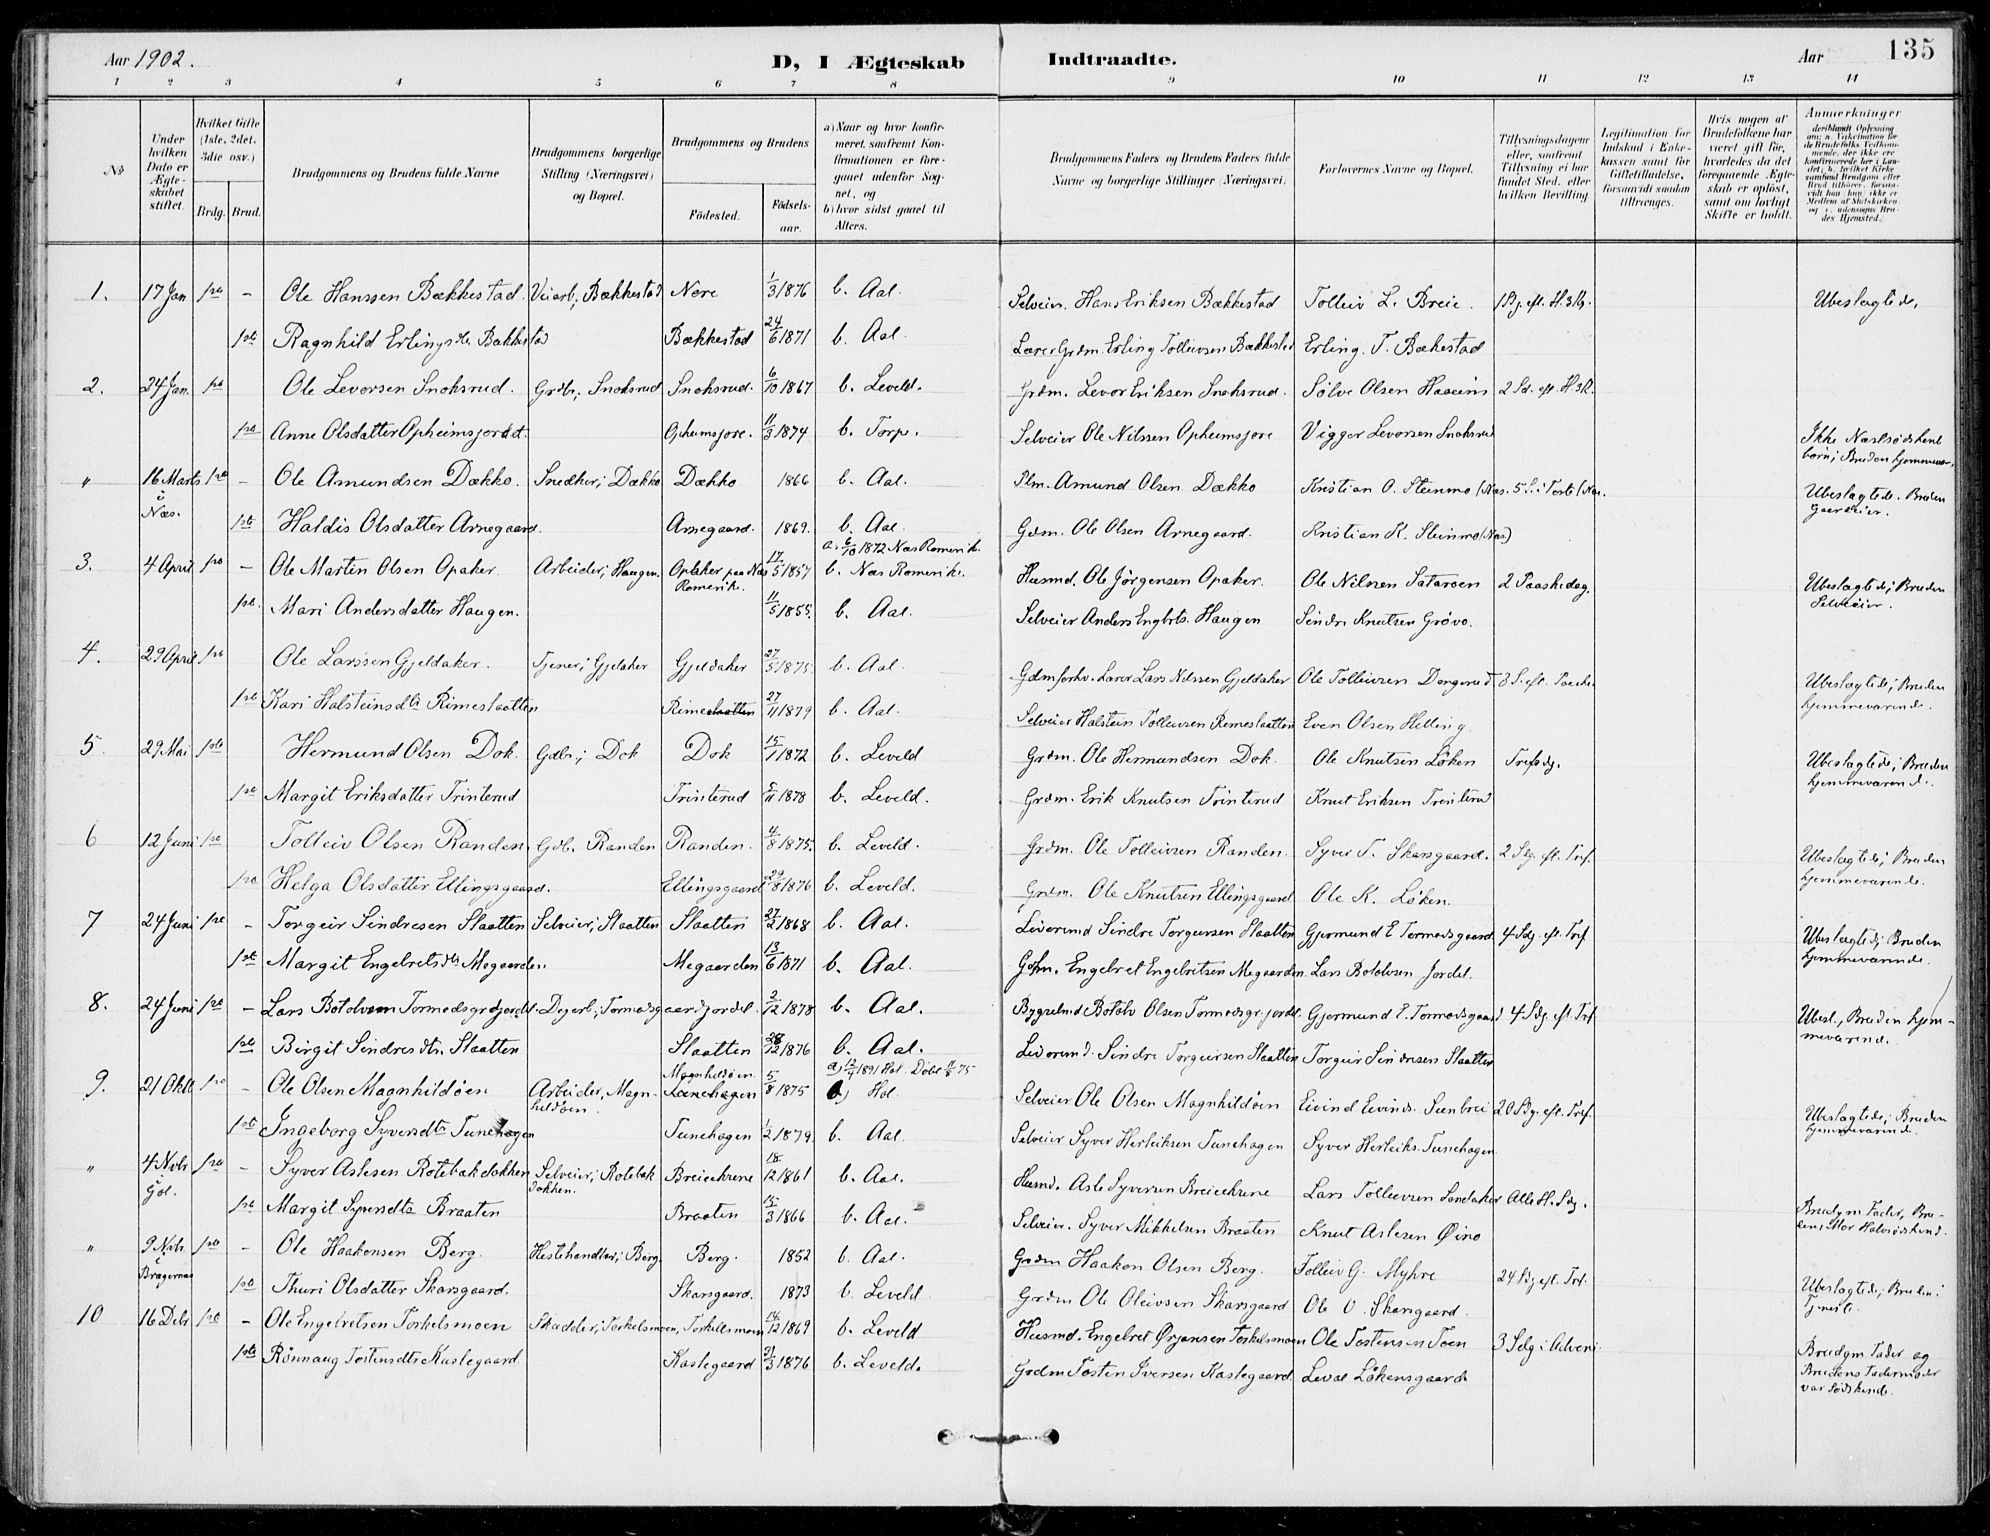 Aar 1902.
D, I Ægteskab Indtraadte.
Aar
135
1 2 3 4 5 6 7 8 9 10 11 12 13 14
No
Under hvilken Dato er Ægteskabet stiftet.
Hvilket Gifte (1ste, 2det, 3die osv.)
Brdg. Brud.
Brudgommens og Brudens fulde Navne
Brudgommens borgerlige Stilling (Næringsvei) og Bopæl.
Brudgommens og Brudens
Födested.
Födsels-aar.
a) Naar og hvor konfirmeret, saafremt Konfirmationen er foregaaet udenfor Sognet, og
b) hvor sidst gaaet til Alters.
Brudgommens Faders og Brudens Faders fulde Navne og borgerlige Stillinger (Næringsvei).
Forlovernes Navne og Bopæl.
Tillysningsdagene eller, saafremt Tillysning ei har fundet Sted, efter hvilken Bevilling
Legitimation for Indskud i Enkekassen samt for Giftetilladelse, forsaavidt saadan tiltrænges.
Hvis nogen af Brudefolkene har været gift før, hvorledes da det foregaaende Ægteskab er oplöst, samt om lovligt Skifte er holdt.
Anmerkninger
1. 17 Jan 1ste - Ole Hanssen Bækkestad. Veiarb., Bækkestad Nore 1/3 1876 b. Aal. Selveier. Hans Eriksen Bækkestad Tolleiv L. Breie. Ubeslægtede.
1ste Ragnhild Erlingsdtr. Bækkestad Bækkestad 24/6 1871 b. Aal. Lærer Grdm. Erling Tolleivsen Bækkestad Erling. T. Bækkestad
2. 24 Jan. 1ste Ole Levorsen Snoksrud. Grdbr., Snoksrud Snoksrud. 6/10 1867 b. Leveld. Grdm. Levor Eriksen Snoksrud. Sölve Olsen 2 Sd. eft. H.3K.
1ste Anne Olsdatter Opheimsjordet. Opheimsjore. 11/3 1874 b. Torp. Selveier Ole Nilssen Opheimsjore Viggar Levorsen Snoksrud Ikke Næstsødskendbörn; Bruden hjemmevær.
" 16 Marts i Næs. 1ste - Ole Amundsen Dækko. Snedker; Dækko Dækko 1866 b. Aal. Plm. Amund Olsen Dækko Kristian O. Steinmo (Næs. Ubeslægtede. Bruden Gaardeier.
1ste Haldis Olsdatter Arnegaard. Arnegaard. 1869. b. Aal. Gdm. Ole Olsen Arnegaard. Kristian K. Steinmo (Næs)
3. 4 April 1ste - Ole Martin Olsen Opaker. Arbeider; Haugen. Opaker paa Næs Romerike. 17/5 1857 a. 6/10 1872 Næs Romerik. b. Næs Romerike. Husmd. Ole Jörgensen Opaker. Ole Nilsen Sataröen 2 Paaskedag. Ubeslægtede; Bruden Selveier.
1ste. Mari Andersdatter Haugen. 11/5 1855. b. Aal. Selveier Anders Engbrts. Haugen Sindre Knutsen Grövo.
4. 29 April 1ste Ole Larssen Gjeldaker. Tjener; Gjeldaker Gjeldaker 27/5 1875. b. Aal. Gdm forhv. Lærer Lars Nilssen Gjeldaker Ole Tolleivsen Dengerud 3 S. eft. Paaske. Ubeslægtede; Bruden hjemmeværende.
1ste Kari Halsteinsdtr Rimeslaatten Rimeslaatten 27/11 1879 b. Aal. Selveier Halstein Tolleivsen Rimeslaatten Even Olsen Helling.
5. 29 Mai 1ste Hermund Olsen Dok. Gdbr.; Dok Dok 15/1 1872 b. Leveld Grdm. Ole Hermundsen Dok. Ole Knutsen Löken Trefsdg. Ubeslægtede; Bruden hjemmeværende.
1ste Margit Eriksdatter Trinterud Trinterud 5/11 1878 b. Leveld. Grdm. Erik Knutsen Trinterud Knut Eriksen Trinterud
6 12 Juni 1ste Tolleiv Olsen Randen. Gdb. Randen Randen. 4/8 1875. b. Leveld. Grdm. Ole Tolleivsen Randen. Syver T. Skarsgaard. 2 Sdg. eft. Tref. Ubeslægtede; Bruden hjemmeværende.
1ste Helga Olsdatter Ellingsgaard. Ellingsgaard 29/8 1876 b. Leveld. Grdm. Ole Knutsen Ellingsgaard Ole K. Löken.
7 24 Juni 1ste - Torgeir Sindresen Slaatten Selveier; Slaatten Slaatten 27/2 1868 b. Aal. Livörmd Sindre Torgeirsen Slaatten Gjermund E Tormodsgaard. 4 Sdg. eft. Tref Ubeslægtede; Bruden hjemmeværende.
1ste Margit Engebretsdtr Megaarden. Megaarden 13/6 1871 b. Aal. Gdm. Engebret Engebretsen Megaarden. Lars Botolvsen Jordet.
8. 24 Juni 1ste - Lars Botolvsen Tormodsgrdjordet. Dagarb; Tormodsgaardjordet. 2/12 1878 b. Aal. Bygselmd Botolv Olsen Tormodsgr.jordet. Gjermund E. Tormodsgaard 4 Sdg. eft. Tref Ubesl., Bruden hjemmeværende.
1ste Birgit Sindresdtr. Slaatten Slaatten 28/12 1876 b. Aal. Livörmd. Sindre Torgeirsen Slaatten Torgeir Sindresen Slaatten
9. 21 Oktb 1ste - Ole Olsen Magnhildöen Arbeider, Magnhildöen. Magnhildöen 5/8 1875 1891 Hol. b) Hol. Selveier Ole Olsen Magnhildöen Eivind Eivinds. Sunbrei 20 Sdg. eft. Tref. Ubeslægtede; Bruden hjemmeværende.
1ste Ingeborg Syversdtr Tunehagen Tunehagen 1/2 1879. b. Aal. Selveier Syver Herleiksen Tunehagen Syver Herleiks. Tunehagen
" 4 Nvbr Gol. 1ste - Syver Aslesen Rotebakdokken Selveier; Rotebakdokken. Breiekrene 18/12 1861 b. Aal. Husmd. Asle Syversen Breiekrene Lars Tolleivsen Sandaker Alle H. Sdg. Brudgm Fader, Brudens Mor Halvsödskend.
1ste Margit Syversdtr Braaten Braaten 15/3 1866 b. Aal. Selveier. Syver Mikkelsen Braaten Knut Aslesen Øino
" 9 Nvbr. Bragernæs 1ste - Ole Haakonsen Berg. Hestehandler; Berg. Berg. 1852 b. Aal. Grdm Haakon Olsen Berg. Tolleiv G. Myhre 24 Sdg eft. Tref. Ubeslægtede; Bruden i Tjeneste.
1ste Thuri Olsdatter Skarsgaard. Skarsgaard. 1873 b. Leveld Grdm Ole Oleivsen Skarsgaard Ole O. Skarsgaard.
10 16 Debr 1ste - Ole Engebretsen Torkelsmoen Skædder; Torkelsmoen, Torkelsmoen 14/12 1869 b. Leveld Husmd. Engebret Ørjansen Torkelsmoen Ole Tostensen Toen 3 Sdg i Advent Brudgm Fader og Brudens Fadermoder var Södskende.
1ste Rönnaug Tostensdtr Kaslegaard. Kaslegaard 31/3 1876 b. Leveld. Grdm Tosten Iversen Kaslegaard. Levor Lökensgaard